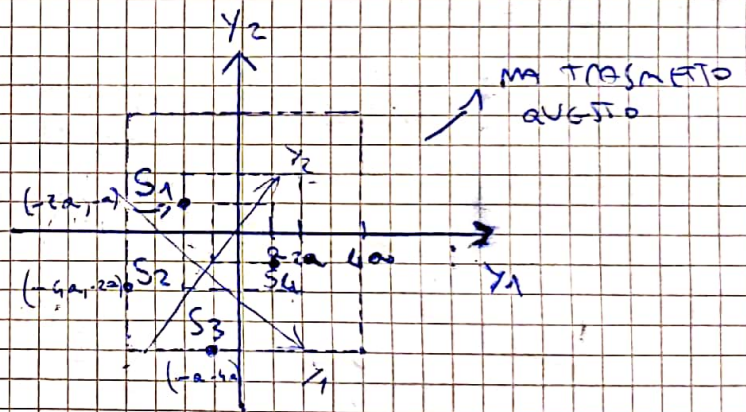 Y2
MA TRASMETTO
QUESTO
Y2
S1
(-2a,-a)
a 2a 4a
S2
(-4a,-2a)
S4
Y1
S3
(-a-4a)
Y1